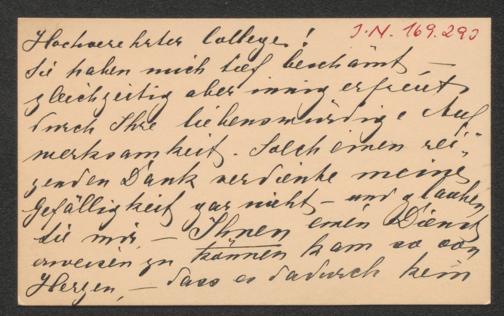 J.N. 169.290
Hochverehrter College!
Sie haben mich tief beschämt, –
gleichzeitig aber innig erfreut
durch Ihre liebenswürdige Auf
merksamkeit. Solch einen rei„
zenden Dank verdiente meine
Gefälligkeit gar nicht – und glauben
Sie mir – Ihnen einen Dienst
erweisen zu können kam so von
Herzen, – dass es dadurch kein